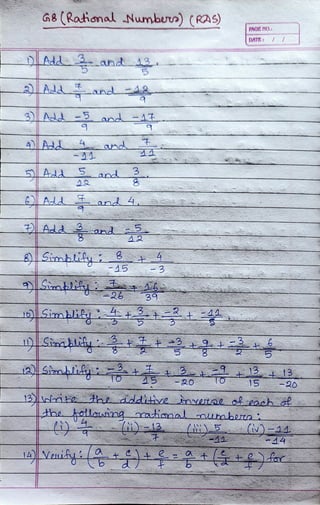 G8 (Rational Numbers) (RAS)
PAGE NO.:
DATE: / /
1) Add 3/5 and 13/5.
2) Add 7/9 and -12/9
3) Add -5/9 and -17/9
4) Add 4/-11 and 7/11.
5) Add 5/12 and 3/8.
6) Add 7/9 and 4.
7) Add 3/8 and -5/12
8) Simplify: 8/-15 + 4/-3
9) Simplify: 7/-26 + 16/39
10) Simplify: 4/3 + 3/5 + -2/3 + -11/5
11) Simplify: 3/8 + 7/2 + -3/5 + 9/8 + -3/2 + 6/5
12) Simplify: -3/10 + 7/15 + 3/-20 + -9/10 + 13/15 + 13/-20
13) Write the additive inverse of each of
the following rational numbers:
(i) 4/9 (ii) -13/7 (iii) 5/-11 (iv) -11/-14
14) Verify: (a/b + c/d) + e/f = a/b + (c/d + e/f) for